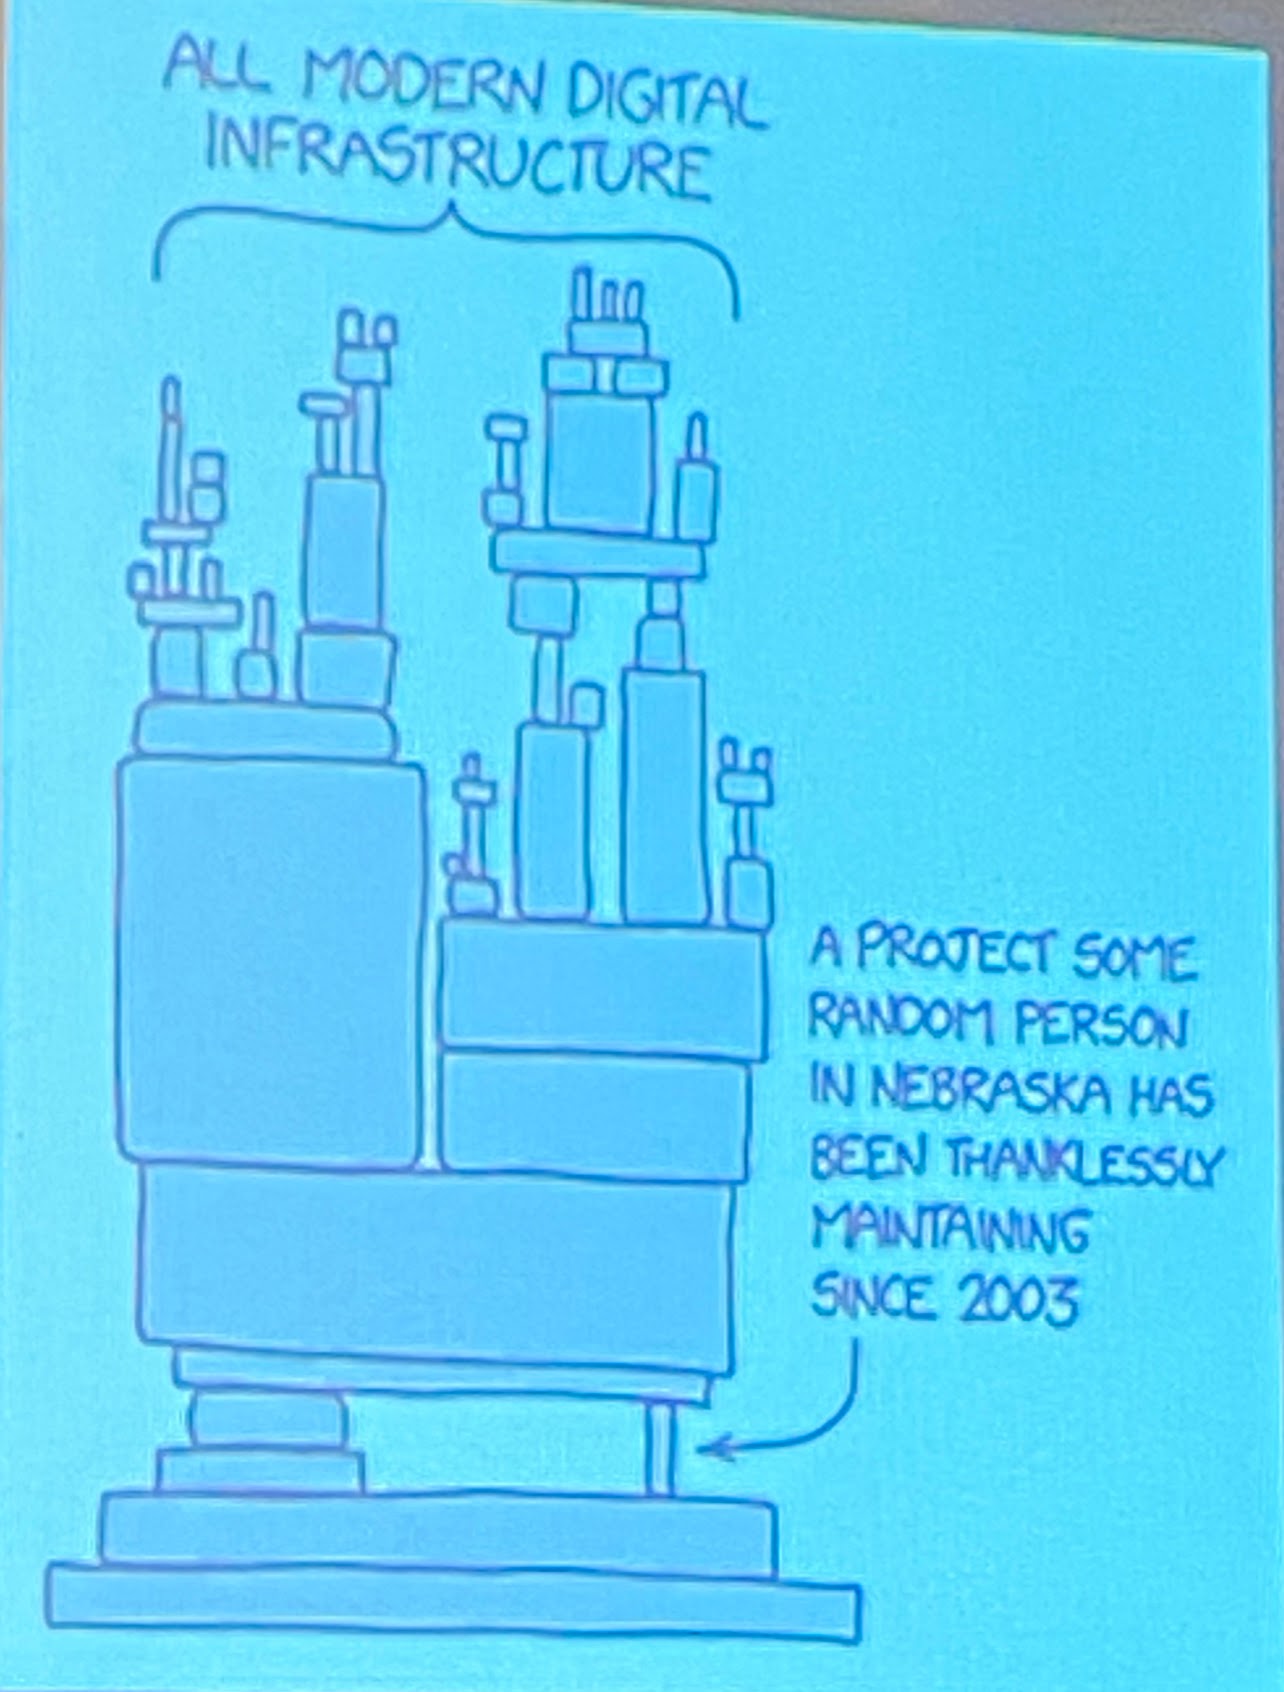 ALL MODERN DIGITAL
INFRASTRUCTURE
A PROJECT SOME
RANDOM PERSON
IN NEBRASKA HAS
BEEN THANKLESSLY
MAINTAINING
SINCE 2003